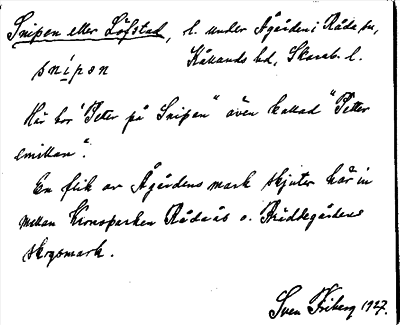 Snipen eller Löfstad, l. under Ågården i Råda sn,
snipən Kållands hd, Skarab. l.
Här bor "Peter på Snipen" även kallad "Petter
emillan".
En flik av Ågårdens mark skjuter här in
mellan Kronoparken Råda ås o. Präståegårdens
skogsmark.
Sven Friberg 1927.